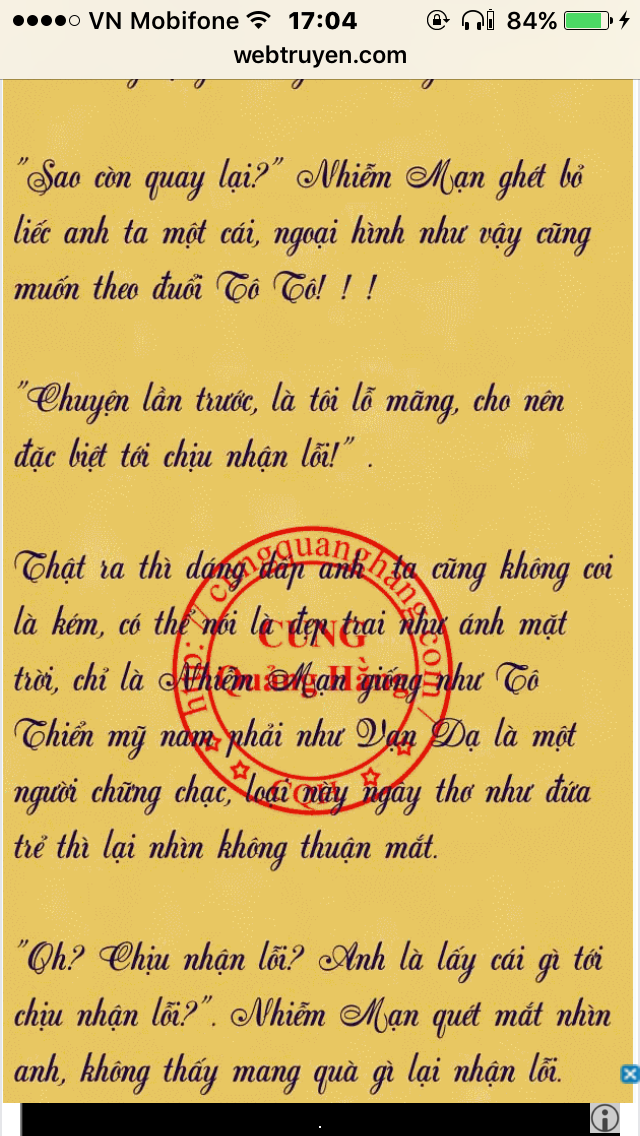 VN Mobifone 17:04 84%
webtruyen.com
"Sao còn quay lại?" Nhiễm Mạn ghét bỏ
liếc anh ta một cái, ngoại hình như vậy cũng
muốn theo đuổi Tô Tô! ! !
"Chuyện lần trước, là tôi lỗ mãng, cho nên
đặc biệt tới chịu nhận lỗi!" .
Thật ra thì dáng dấp anh ta cũng không coi
là kém, có thể nói là đẹp trai như ánh mặt
trời, chỉ là Nhiễm Mạn giống như Tô
Thiển mỹ nam phải như Vạn Dạ là một
người chững chạc, loại này ngây thơ như đứa
trẻ thì lại nhìn không thuận mắt.
http://cungquanghang.com/
CUNG
Quảng Hằng
CQH
"Oh? Chịu nhận lỗi? Anh là lấy cái gì tới
chịu nhận lỗi?". Nhiễm Mạn quét mắt nhìn
anh, không thấy mang quà gì lại nhận lỗi.